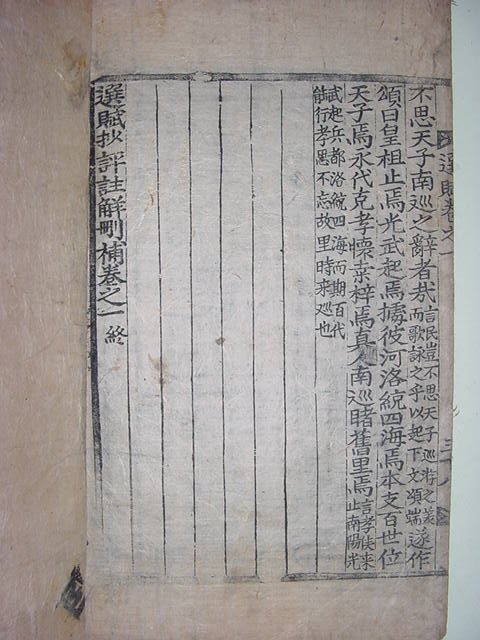 選賦卷之一
不思天子南巡之辭者哉言民豈不思天子巡游之美而歌詠之乎以起下文頌端遂作
頌曰皇祖止焉光武起焉據彼河洛統四海焉本支百世位
天子焉永代克孝懷桑梓焉真人南巡睹舊里焉言孝侯来止南陽光
武起兵都洛統四海而期百代
能行孝思不忘故里時来巡也
選賦抄評註解刪補卷之一 終